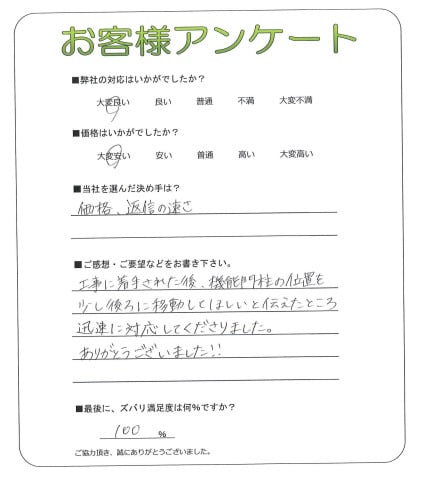 お客様アンケート
■弊社の対応はいかがでしたか?
大変良い 良い 普通 不満 大変不満
■価格はいかがでしたか?
大変安い 安い 普通 高い 大変高い
■当社を選んだ決め手は?
価格、返信の速さ
■ご感想・ご要望などをお書き下さい。
工事に着手された後、機能門柱の位置を
少し後ろに移動してほしいと伝えたところ
迅速に対応してくださりました。
ありがとうございました!!
■最後に、ズバリ満足度は何%ですか?
100 %
ご協力頂き、誠にありがとうございました。